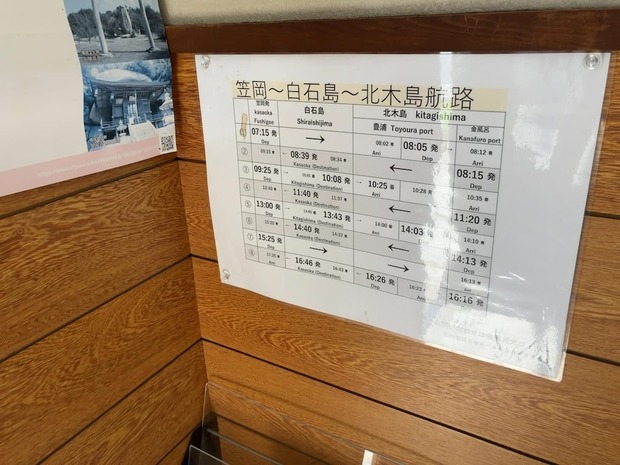 笠岡～白石島～北木島航路
笠岡発 白石島 北木島 kitagishima
kasaoka Shiraishijima 豊浦 Toyoura port 金風呂
Fushigoe Kanafuro port
07:15 発 → 08:02 着 08:05 発 08:12 着
Dep Arri Dep Arri
② 09:15 着 08:39 発 08:34 着 ← 08:15 発
Kasaoka (Destination) Dep
③ 09:25 発 10:08 発 10:25 着 10:28 発 10:35 着
Dep Kitagishima (Destination) Arri Arri
④ 11:40 発 11:37 着 ← 11:20 発
Kasaoka (Destination) Dep
⑤ 13:00 発 13:43 発 14:00 着 14:03 発 14:10 着
Dep Kitagishima (Destination) Arri Dep Arri
⑥ 14:40 発 14:37 着 ← 14:13 発
Kasaoka (Destination) Dep
⑦ 15:25 発 → → 16:13 着
Dep Arri
⑧ 16:46 発 16:43 着 16:26 発 16:23 着 16:16 発
Kasaoka (Destination) Dep Arri Dep